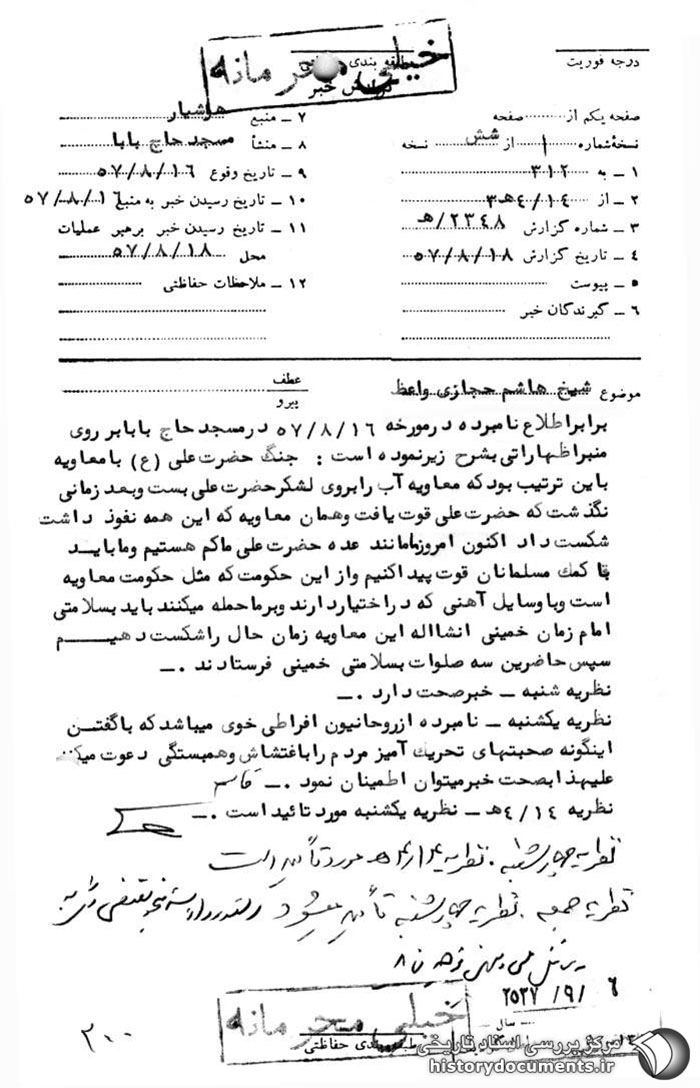 خیلی محرمانه
درجه فوریت
گزارش خبر
صفحه یکم از صفحه
نسخهٔ شماره ۱ از شش نسخه
۱ ـ به ۳۱۲
۲ ـ از ۴/۱۴هـ۳
۳ ـ شماره گزارش ۲۳۴۸/هـ
۴ ـ تاریخ گزارش ۵۷/۸/۱۸
۵ ـ پیوست
۶ ـ گیرندگان خبر
۷ ـ منبع هوشیار
۸ ـ منشأ مسجد حاج بابا
۹ ـ تاریخ وقوع ۵۷/۸/۱۶
۱۰ ـ تاریخ رسیدن خبر به منبع ۵۷/۸/۱۶
۱۱ ـ تاریخ رسیدن خبر برهبر عملیات
محل ۵۷/۸/۱۸
۱۲ ـ ملاحظات حفاظتی
موضوع شیخ هاشم حجازی واعظ
عطف
پیرو
برابر اطلاع نامبرده در مورخه ۵۷/۸/۱۶ در مسجد حاج بابا بر روی
منبر اظهاراتی بشرح زیر نموده است : جنگ حضرت علی (ع) با معاویه
باین ترتیب بود که معاویه آب را بروی لشکر حضرت علی بست و بعد زمانی
نگذشت که حضرت علی قوت یافت و همان معاویه که این همه نفوذ داشت
شکست داد اکنون امروز ما مانند عده حضرت علی ما کم هستیم و ما باید
با کمک مسلمانان قوت پیدا کنیم و از این حکومت که مثل حکومت معاویه
است و با وسایل آهنی که در اختیار دارند و بر ما حمله میکنند باید بسلامتی
امام زمان خمینی انشااله این معاویه زمان حال را شکست دهیم
سپس حاضرین سه صلوات بسلامتی خمینی فرستادند .ــ
نظریه شنبه ــ خبر صحت دارد .ــ
نظریه یکشنبه ــ نامبرده از روحانیون افراطی خوی میباشد که با گفتن
اینگونه صحبتهای تحریک آمیز مردم را باغتشاش و همبستگی دعوت میکند
علیهذا بصحت خبر میتوان اطمینان نمود .ــ قاسم
نظریه ۴/۱۴هـ ــ نظریه یکشنبه مورد تائید است .ــ
نظریه چهارشنبه . نظریه ۴/۱۴هـ مورد تأیید است
نظریه جمعه . نظریه چهارشنبه تأیید میشود
۶ /۹/ ۲۵۳۷
سال
خیلی محرمانه
طبقه بندی حفاظتی
۲۰۰
مرکز بررسی اسناد تاریخی
historydocuments.ir